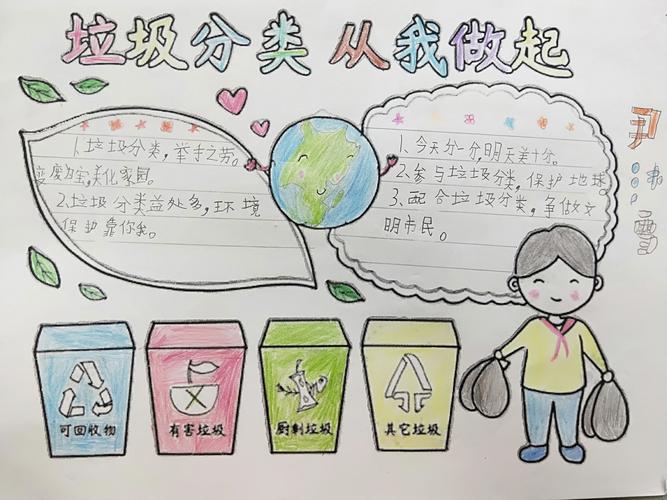 垃圾分类 从我做起
1.垃圾分类,举手之劳。
变废为宝,美化家园。
2.垃圾分类益处多,环境
保护靠你我。
1.今天分一分,明天美十分。
2.参与垃圾分类,保护地球
3.配合垃圾分类,争做文
明市民。
可回收物
有害垃圾
厨剩垃圾
其它垃圾